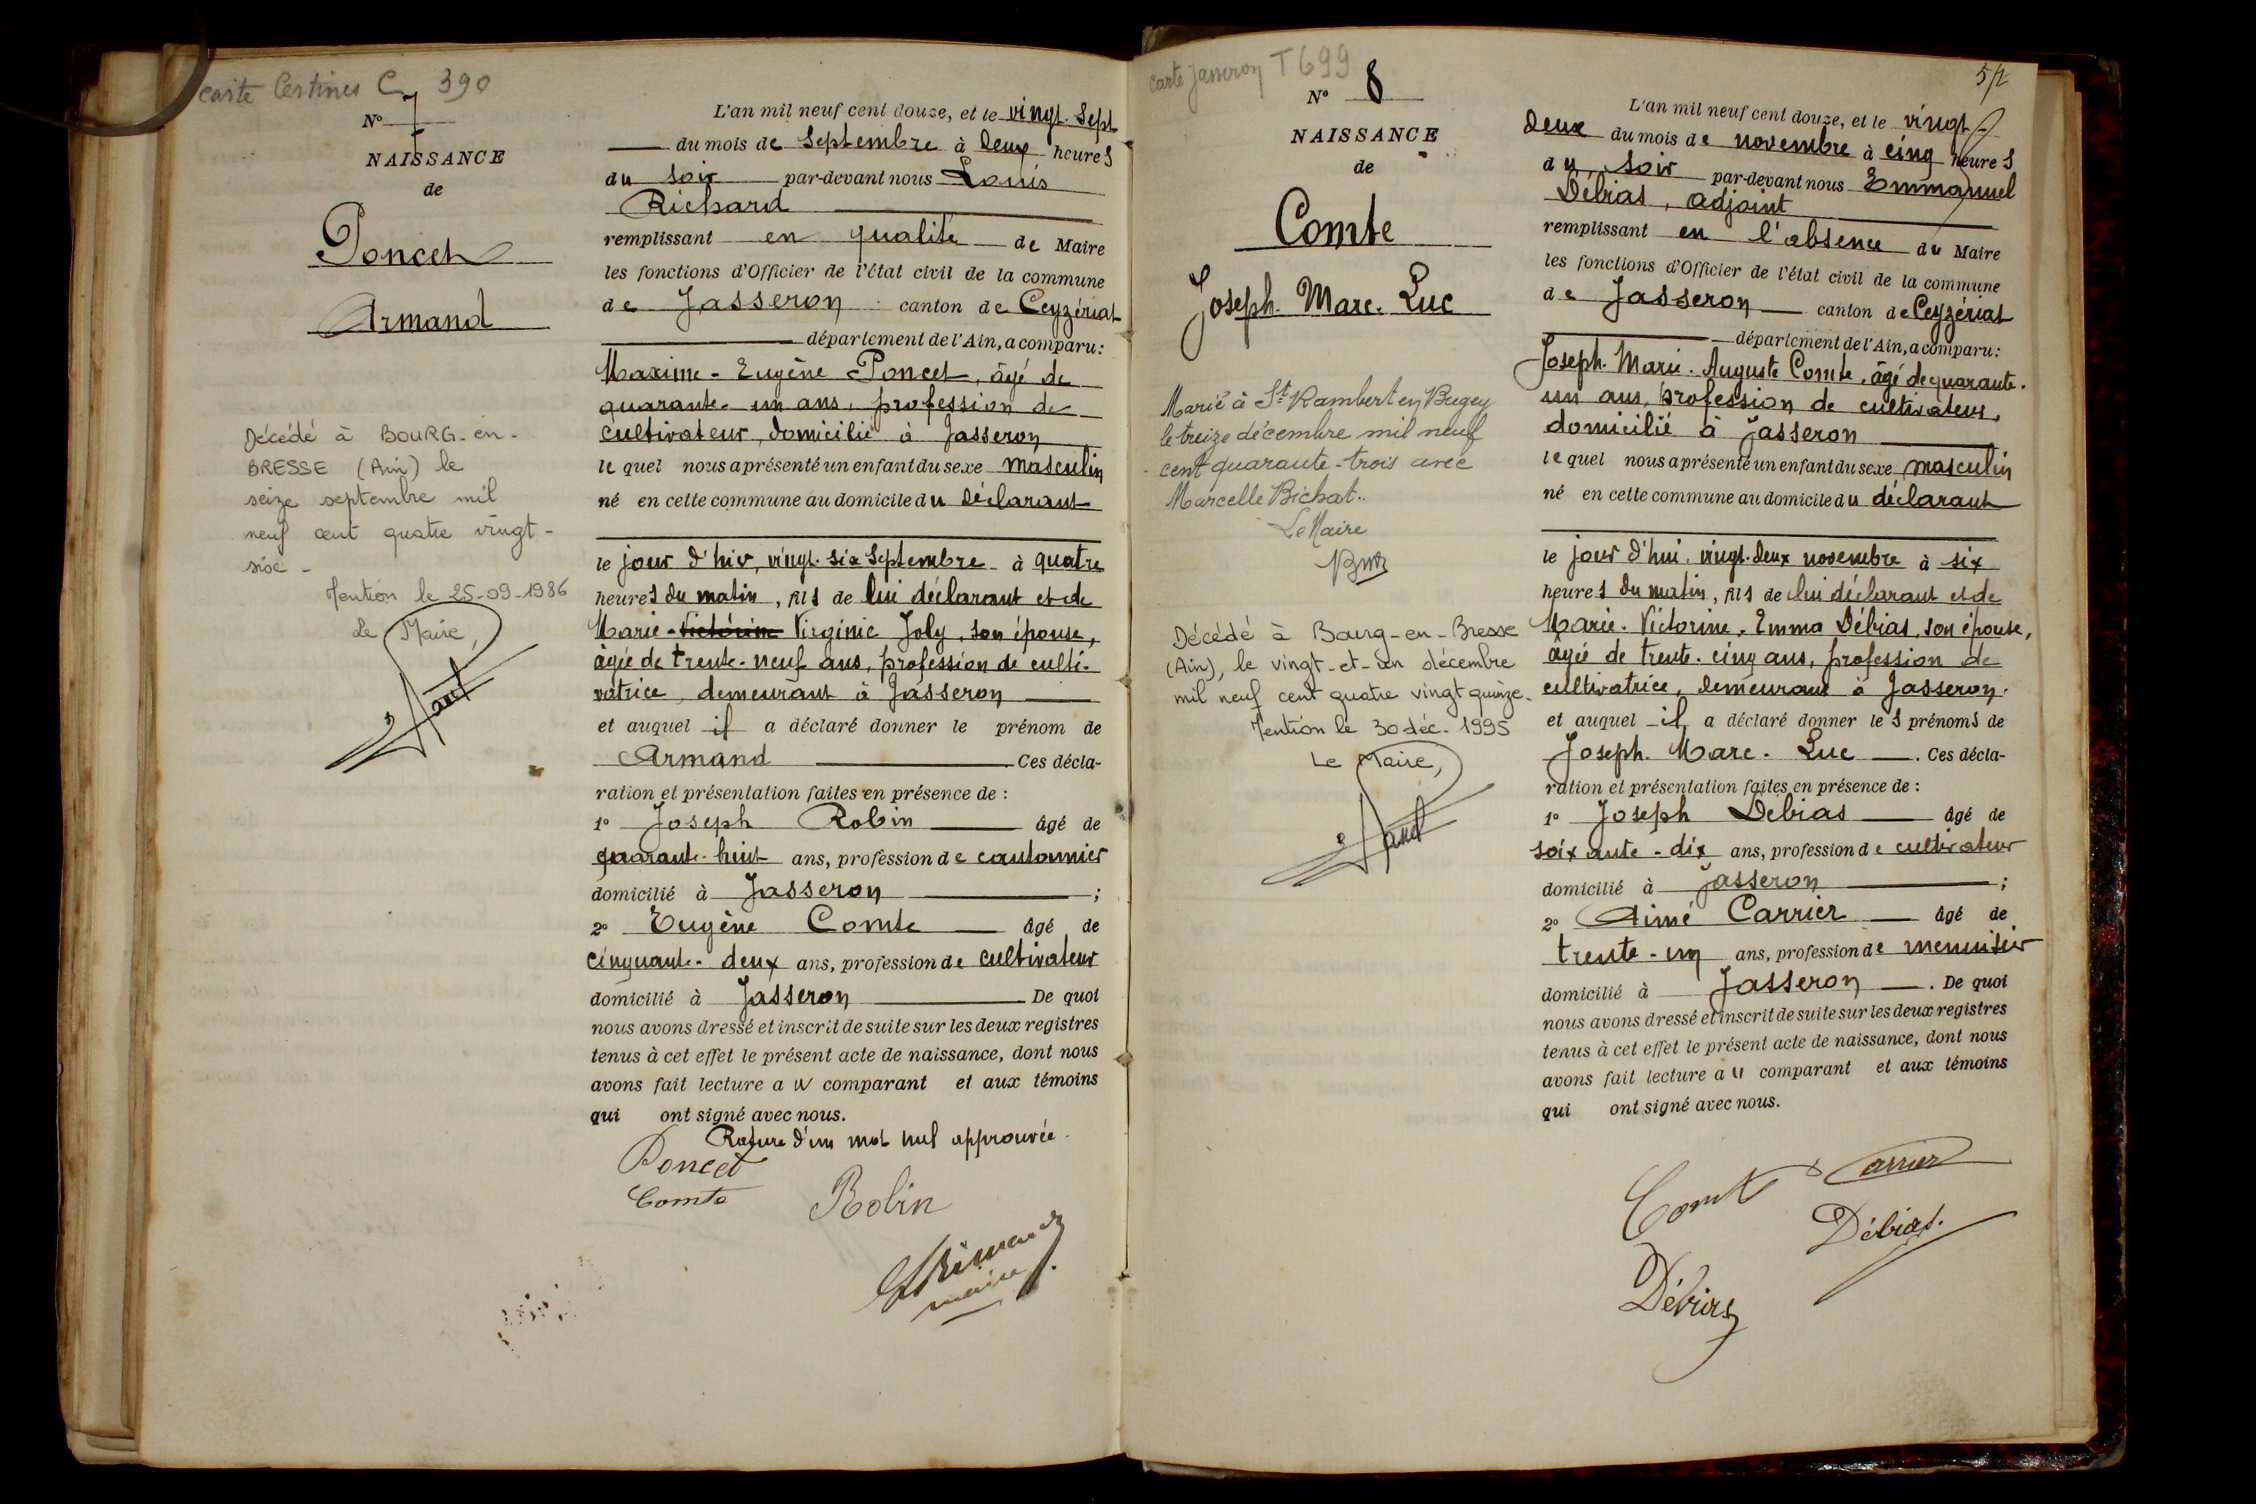 carte Certines C 390
N° 7
NAISSANCE
de
Poncet
Armand
Décédé à BOURG-en-
BRESSE (Ain) le
seize septembre mil
neuf cent quatre vingt-
six -
Mention le 25-09-1986
Le Maire,
L'an mil neuf cent douze, et le vingt-sept
du mois de Septembre à deux heures
du soir par-devant nous Louis
Richard
remplissant en qualité de Maire
les fonctions d'Officier de l'état civil de la commune
de Jasseron canton de Ceyzériat
département de l'Ain, a comparu:
Maxime-Eugène Poncet, âgé de
quarante-un ans, profession de
cultivateur, domicilié à Jasseron
lequel nous a présenté un enfant du sexe masculin
né en cette commune au domicile du déclarant
le jour d'hier, vingt-six Septembre à quatre
heures du matin, fils de lui déclarant et de
Marie-Victorine Virginie Joly, son épouse,
âgée de trente-neuf ans, profession de culti-
vatrice, demeurant à Jasseron
et auquel il a déclaré donner le prénom de
Armand Ces décla-
ration et présentation faites en présence de :
1° Joseph Robin âgé de
quarante-huit ans, profession de cantonnier
domicilié à Jasseron ;
2° Eugène Comte âgé de
cinquante-deux ans, profession de cultivateur
domicilié à Jasseron De quoi
nous avons dressé et inscrit de suite sur les deux registres
tenus à cet effet le présent acte de naissance, dont nous
avons fait lecture au comparant et aux témoins
qui ont signé avec nous.
Rature d'un mot nul approuvée.
Poncet
Comte Robin
maire
carte Jasseron T 699
N° 8
NAISSANCE
de
Comte
Joseph-Marc-Luc
Marié à St Rambert en Bugey
le treize décembre mil neuf
cent quarante-trois avec
Marcelle Bichat..
Le Maire
Décédé à Bourg-en-Bresse
(Ain), le vingt-et-un décembre
mil neuf cent quatre vingt quinze-
Mention le 30 déc. 1995
Le Maire,
52
L'an mil neuf cent douze, et le vingt-
deux du mois de novembre à cinq heures
du soir par-devant nous Emmanuel
Débias, adjoint
remplissant en l'absence du Maire
les fonctions d'Officier de l'état civil de la commune
de Jasseron canton de Ceyzériat
département de l'Ain, a comparu:
Joseph-Marie-Auguste Comte, âgé de quarante-
un ans, profession de cultivateur,
domicilié à Jasseron
lequel nous a présenté un enfant du sexe masculin
né en cette commune au domicile du déclarant
le jour d'hui, vingt-deux novembre à six
heures du matin, fils de lui déclarant et de
Marie-Victorine-Emma Débias, son épouse,
âgée de trente-cinq ans, profession de
cultivatrice, demeurant à Jasseron.
et auquel il a déclaré donner les prénoms de
Joseph-Marc-Luc . Ces décla-
ration et présentation faites en présence de :
1° Joseph Debias âgé de
soixante-dix ans, profession de cultivateur
domicilié à Jasseron ;
2° Aimé Carrier âgé de
trente-un ans, profession de menuisier
domicilié à Jasseron . De quoi
nous avons dressé et inscrit de suite sur les deux registres
tenus à cet effet le présent acte de naissance, dont nous
avons fait lecture au comparant et aux témoins
qui ont signé avec nous.
Comte Carrier
Débias.
Débias